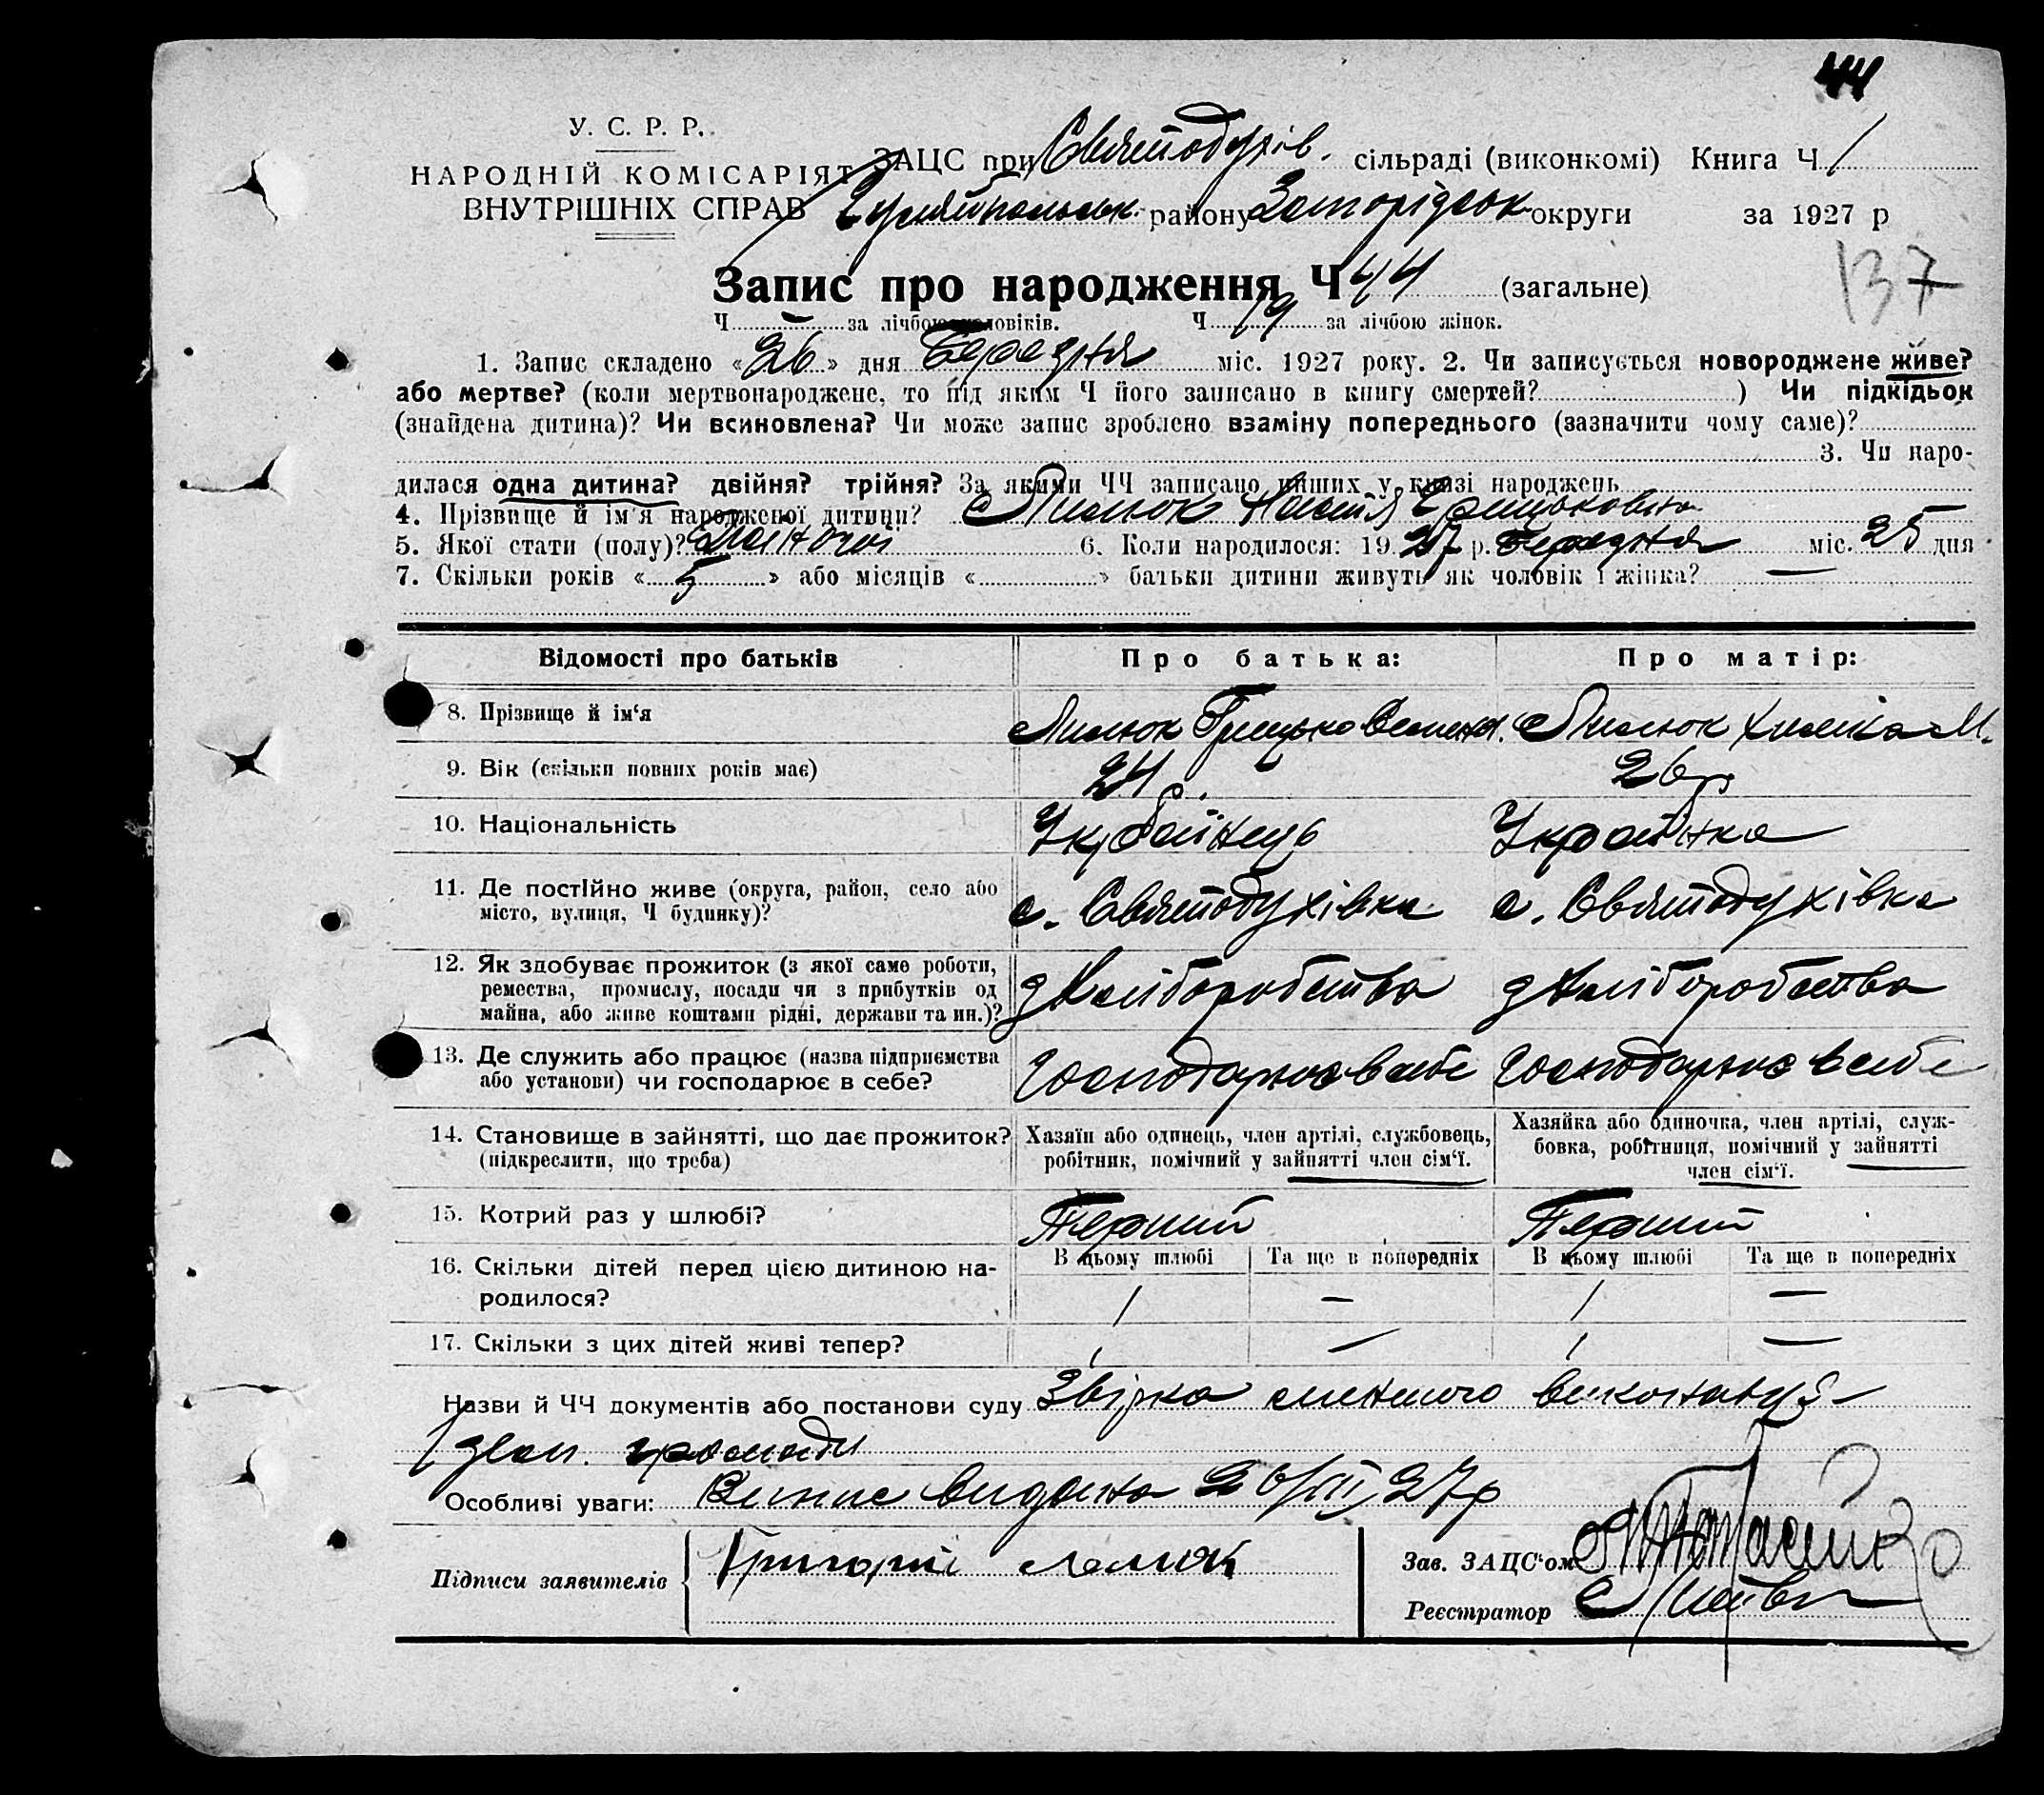 44
У. С. Р. Р.
НАРОДНІЙ КОМІСАРІЯТ
ВНУТРІШНІХ СПРАВ
ЗАЦС при Святодухів. сільраді (виконкомі) Книга Ч 1
Гуляйпольськ. району Запорідськ округи за 1927 р
137
Запис про народження Ч 44 (загальне)
Ч — за лічбою чоловіків. Ч 19 за лічбою жінок.
1. Запис складено «26» дня Березня міс. 1927 року. 2. Чи записується новороджене живе?
або мертве? (коли мертвонароджене, то під яким Ч його записано в книгу смертей? ) Чи підкідьок
(знайдена дитина)? Чи всиновлена? Чи може запис зроблено взаміну попереднього (зазначити чому саме)?
3. Чи наро-
дилася одна дитина? двійня? трійня? За якими ЧЧ записано инших у книзі народжень
4. Прізвище й ім'я народженої дитини? Настя Грицьковна
5. Якої стати (полу)? Жіночої 6. Коли народилося: 1927 р. Березня міс. 25 дня
7. Скільки років «5» або місяців « » батьки дитини живуть як чоловік і жінка? —
Відомості про батьків Про батька: Про матір:
8. Прізвище й ім‘я Грицько М.
9. Вік (скільки повних років має) 24 р. 26 р
10. Національність Українець Українка
11. Де постійно живе (округа, район, село або
місто, вулиця, Ч будинку)? с. Святодухівка с. Святодухівка
12. Як здобуває прожиток (з якої саме роботи,
ремества, промислу, посади чи з прибутків од
майна, або живе коштами рідні, держави та ин.)? з Хліборобства з Хліборобства
13. Де служить або працює (назва підприємства
або установи) чи господарює в себе? Господарює в себе Господарює в себе
14. Становище в зайнятті, що дає прожиток?
(підкреслити, що треба)
Хазяїн або одинець, член артілі, службовець,
робітник, помічний у зайнятті член сім‘ї.
Хазяйка або одиночка, член артілі, служ-
бовка, робітниця, помічний у зайнятті
член сім‘ї.
15. Котрий раз у шлюбі? Перший Перший
В цьому шлюбі Та ще в попередніх В цьому шлюбі Та ще в попередніх
16. Скільки дітей перед цією дитиною на-
родилося? 1 — 1 —
17. Скільки з цих дітей живі тепер? 1 — 1 —
Назви й ЧЧ документів або постанови суду Звірка
зем. громади
Особливі уваги: Випис видано 26/III 27р
Підписи заявителів Григорій
Зав. ЗАЦС‘ом
Реєстратор